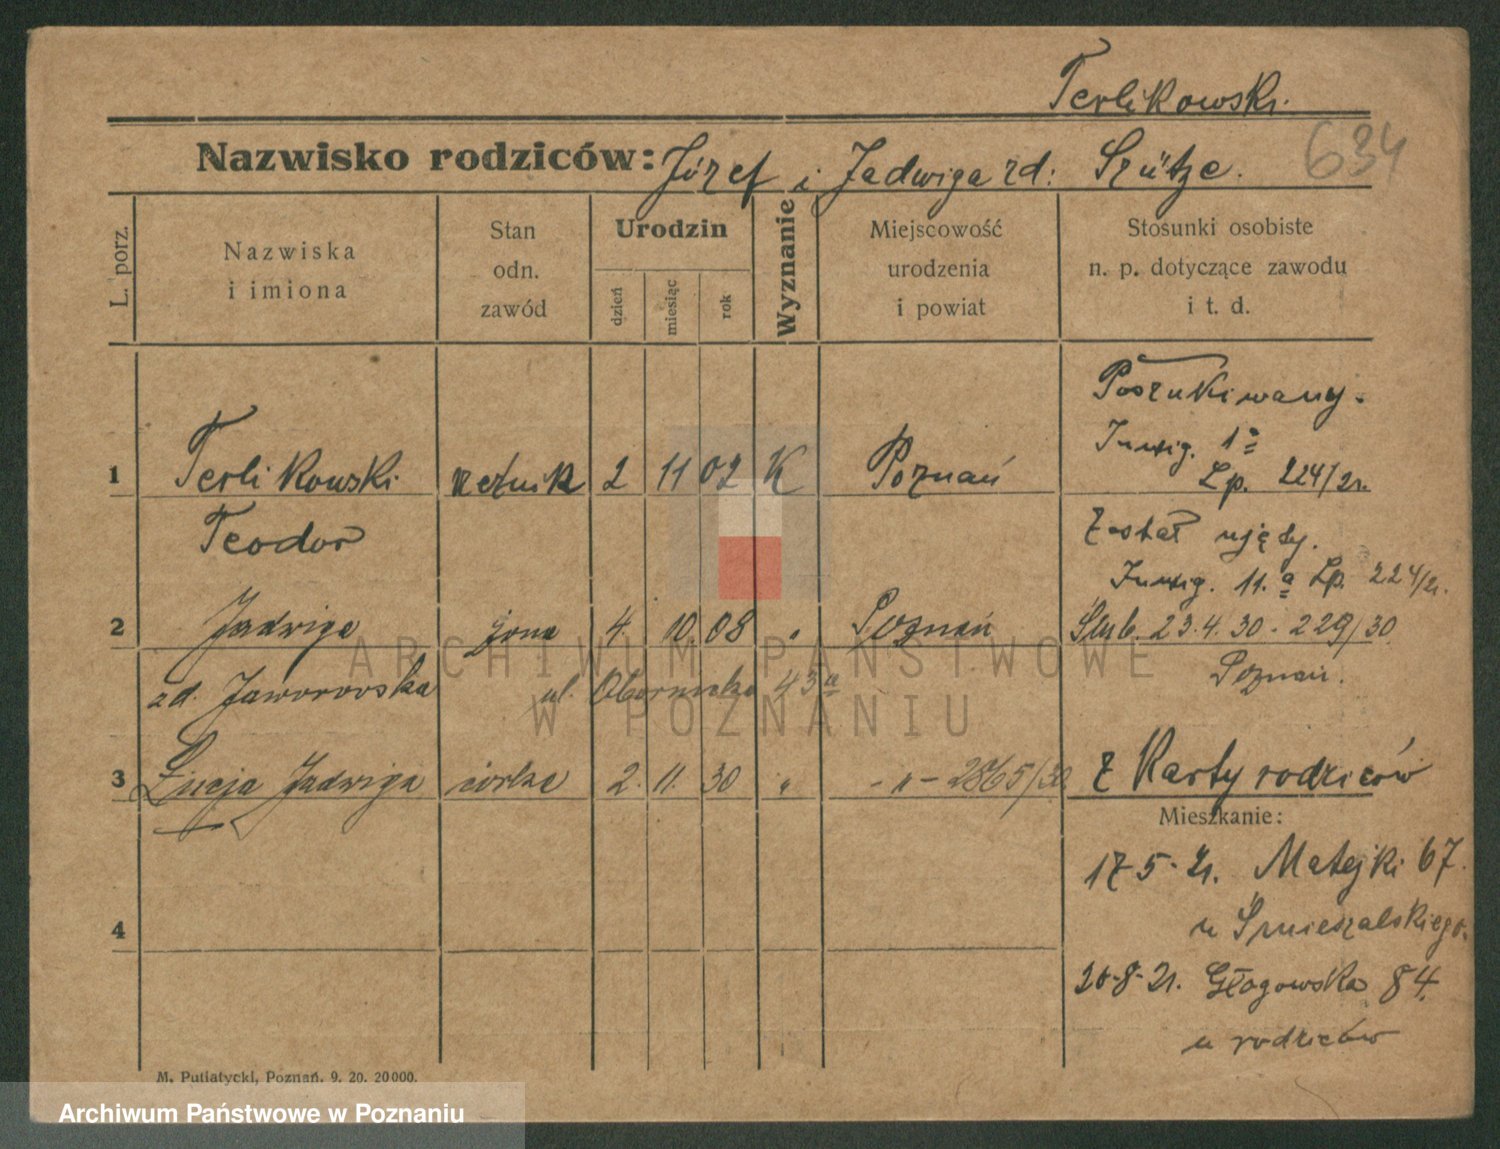 Terlikowski.
Nazwisko rodziców: Józef i Jadwiga zd: Szütze.
634
L. porz.
Nazwiska
i imiona
Stan
odn.
zawód
Urodzin
dzień
miesiąc
rok
Wyznanie
Miejscowość
urodzenia
i powiat
Stosunki osobiste
n. p. dotyczące zawodu
i t. d.
Poszukiwany.
Inwig. 1a
Lp. 224/21.
1 Terlikowski rzeźnik 2 11 02 K Poznań
Teodor
Został ujęty.
Inwig. 11.a Lp. 224/21.
2 Jadwiga żona 4. 10 08 " Poznań
Ślub. 23.4.30 - 229/30
Poznań.
zd. Jaworowska ul. Obornicka 43a
3 Łucja Jadwiga córka 2. 11. 30 " - " - 2865/30
z Karty rodziców
Mieszkanie:
17-5-21. Matejki 67.
u Śmieszalskiego.
4
20-8-21. Głogowska 84.
u rodziców
M. Putiatycki, Poznań. 9. 20. 20000.
ARCHIWUM PAŃSTWOWE
W POZNANIU
Archiwum Państwowe w Poznaniu